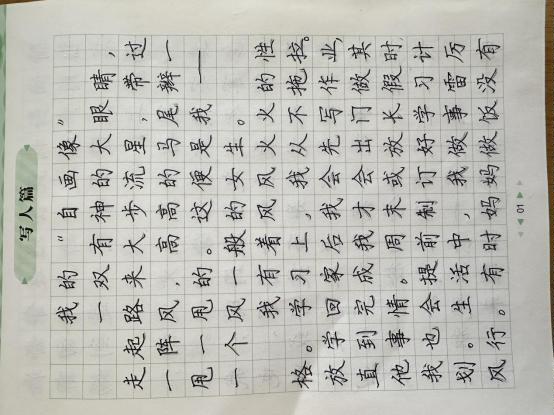 写人篇
我的“自画像”
一双有神的大眼睛，
走起路来大步流星，带过
一阵风，高高的马尾辫一
甩一甩的。这便是我——
一个风一般的女生。
我有着风风火火的性
格。学习上，我从不拖拉。
放学回家后我会先写作业，
直到完成我才会出门做其
他事情。周末或放长假时，
我也会提前制订好学习计
划。生活中，我做事雷厉
风行。有时妈妈做饭没有